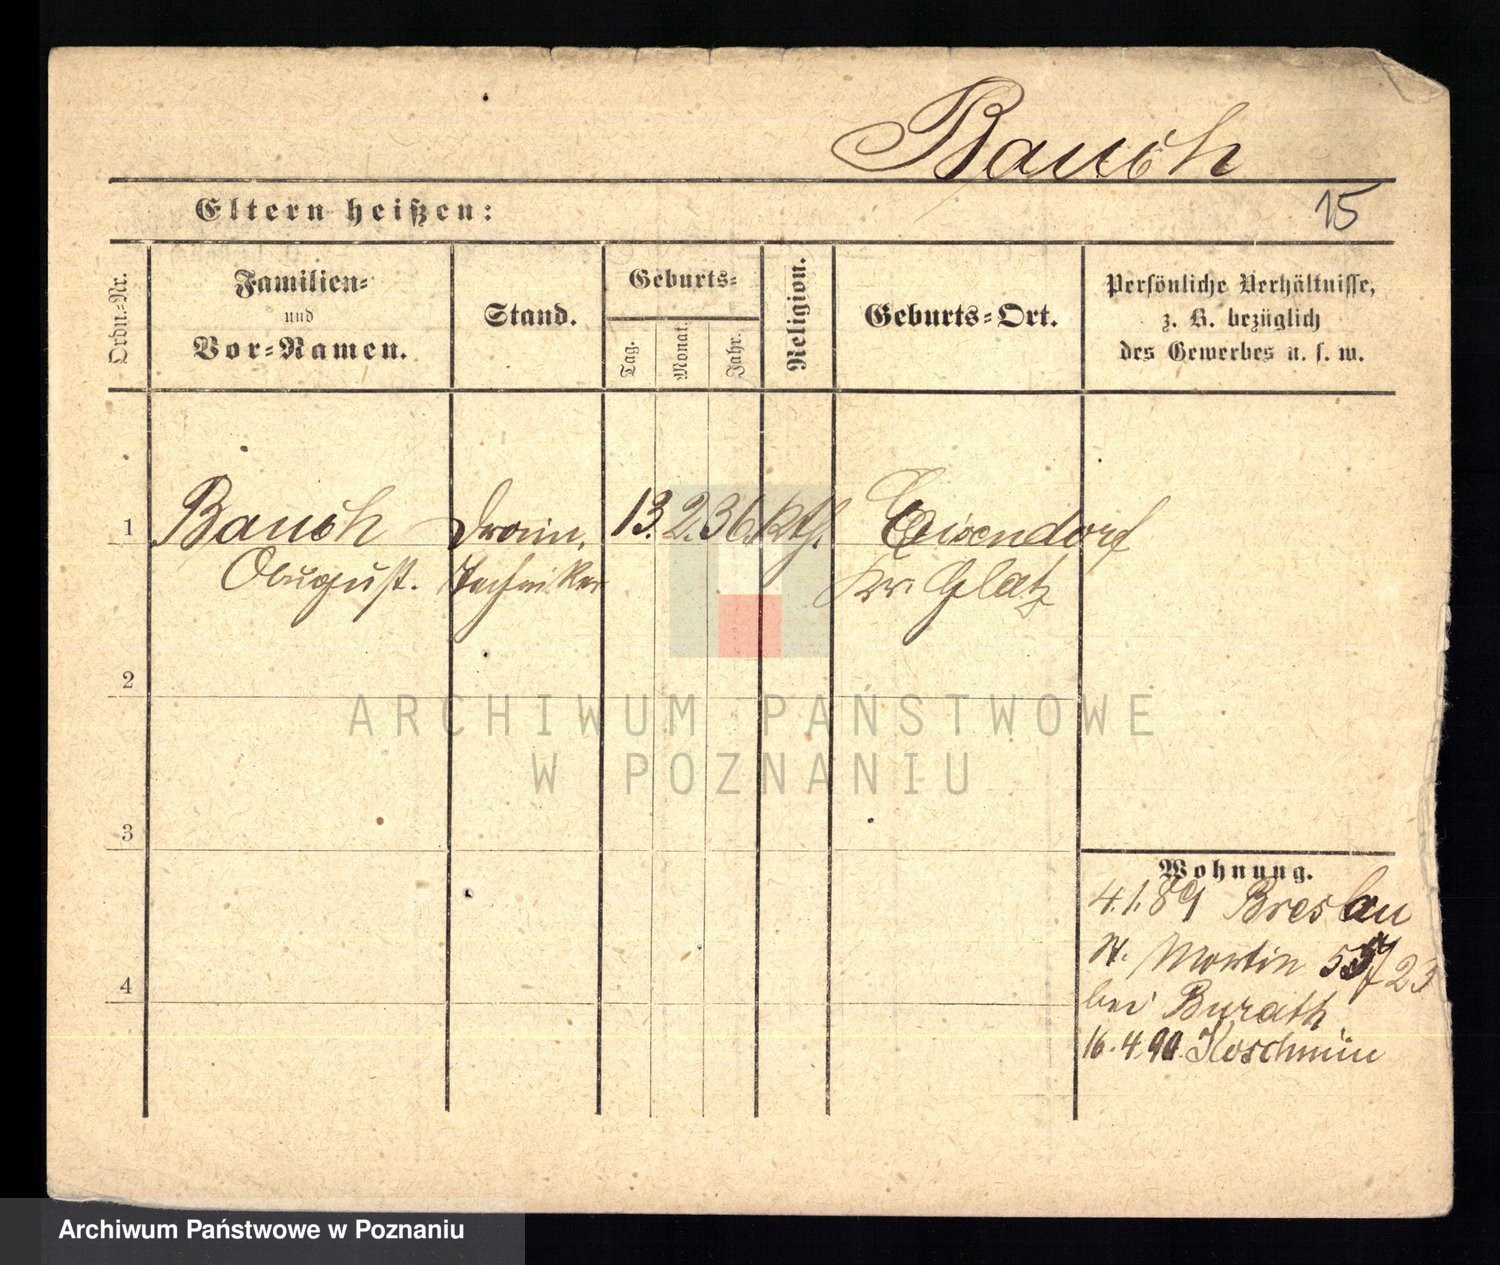 Bauch
15
Eltern heißen:
Ordn.-Nr.
Familien-
und
Vor-Namen.
Stand.
Geburts-
Tag.
Monat.
Jahr.
Religion.
Geburts-Ort.
Persönliche Verhältnisse,
z. B. bezüglich
des Gewerbes u. s. w.
1
Bauch
August.
Drain.
Techniker
13. 2. 36. kth.
Eisendorf
Kr. Glatz
2
3
4
Wohnung.
4.1.89 Breslau
St. Martin 23
bei Burath
16.4.90. Koschmin
ARCHIWUM PAŃSTWOWE
W POZNANIU
Archiwum Państwowe w Poznaniu